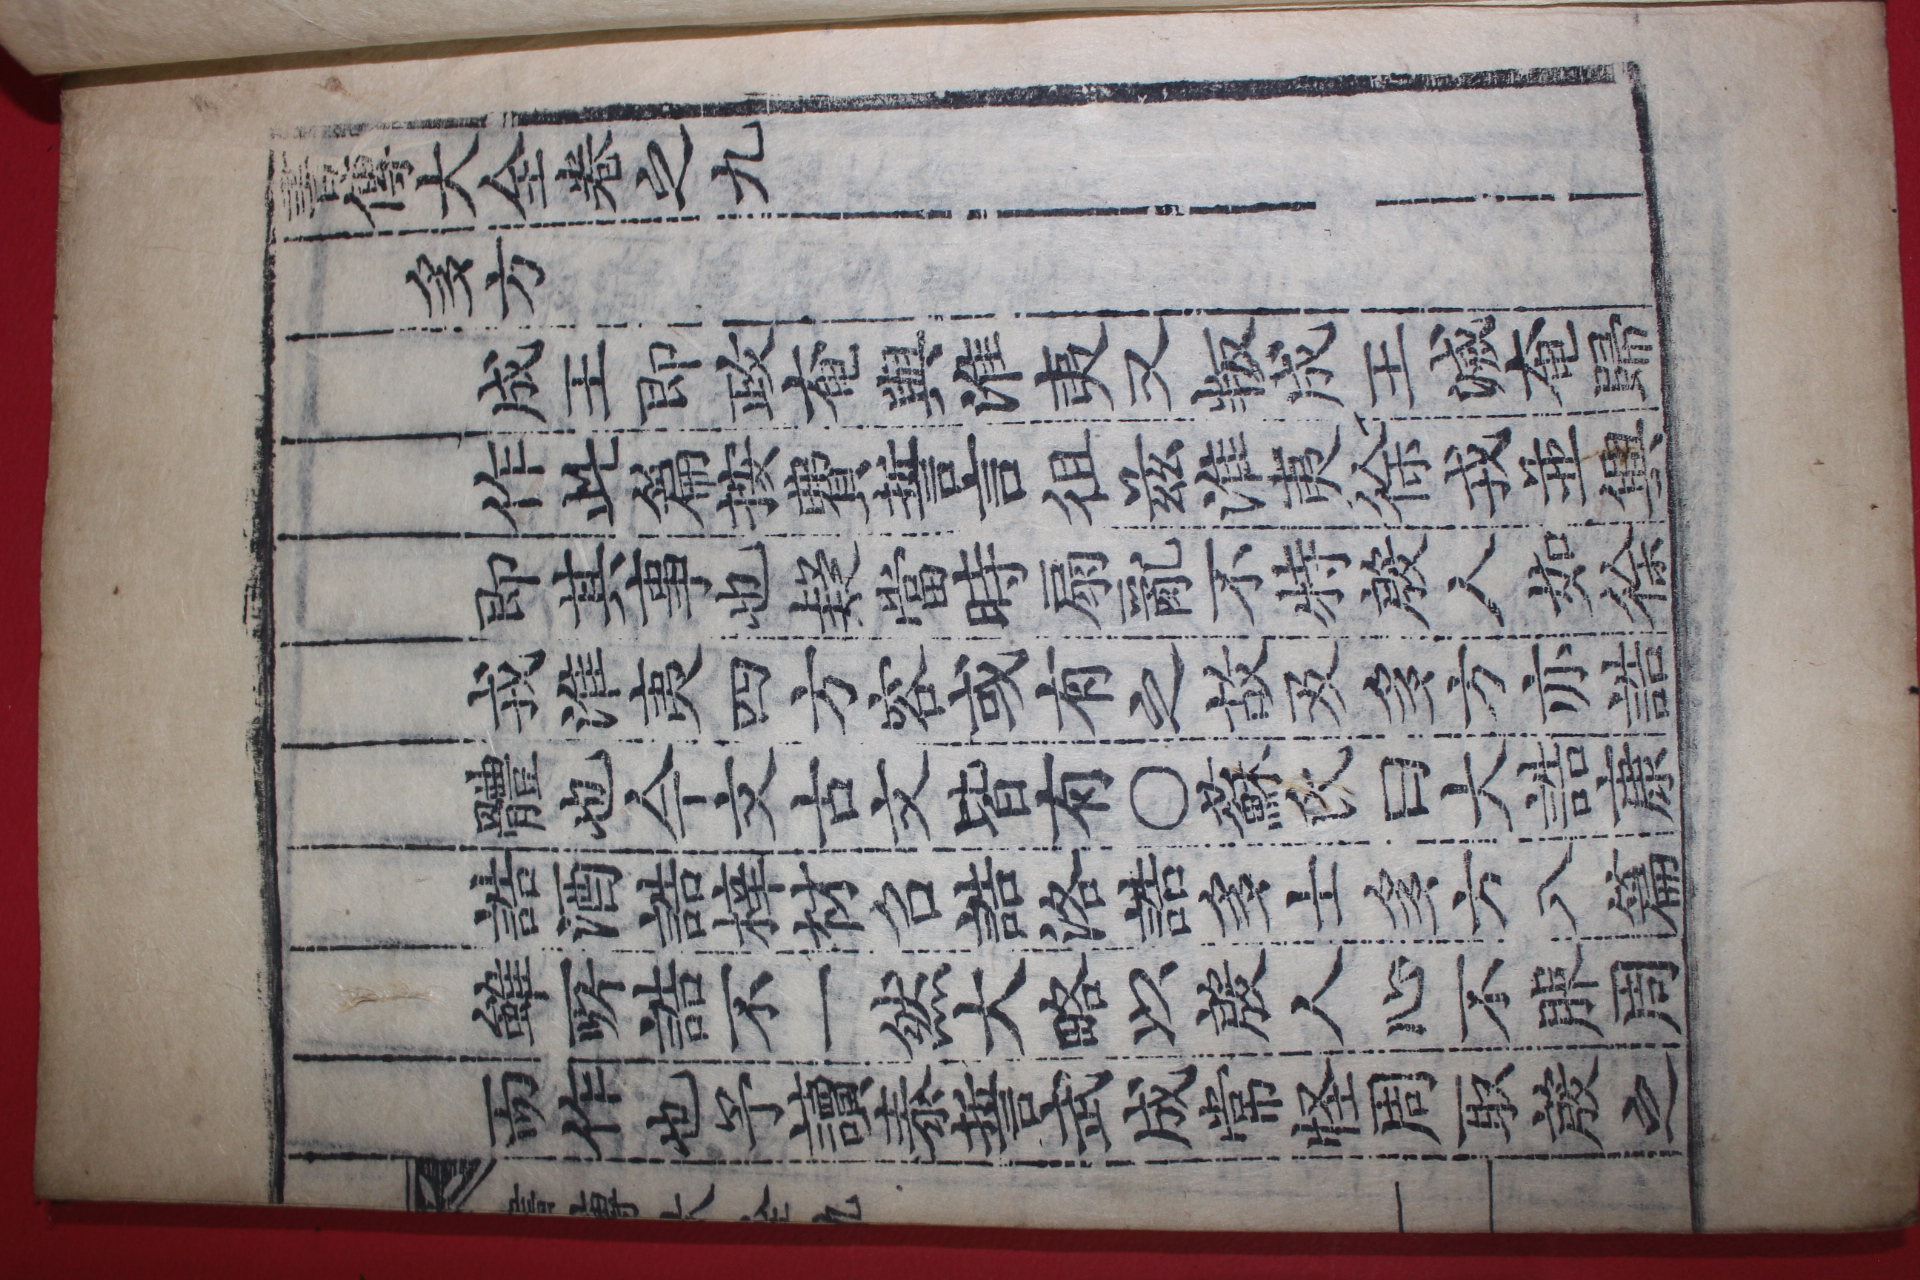 書傳大全卷之九
多方
成王即政奄與淮夷又叛成王滅奄歸
作此篇按費誓言徂玆淮夷徐戎並興
即其事也疑當時扇亂不特殷人如徐
戎淮夷四方容或有之故及多方亦誥
體也今文古文皆有○蘇氏曰大誥康
誥酒誥梓材召誥洛誥多士多方八篇
雖所誥不一然大略以殷人心不服周
而作也予讀泰誓武成常怪周取殷之
書傳大全九